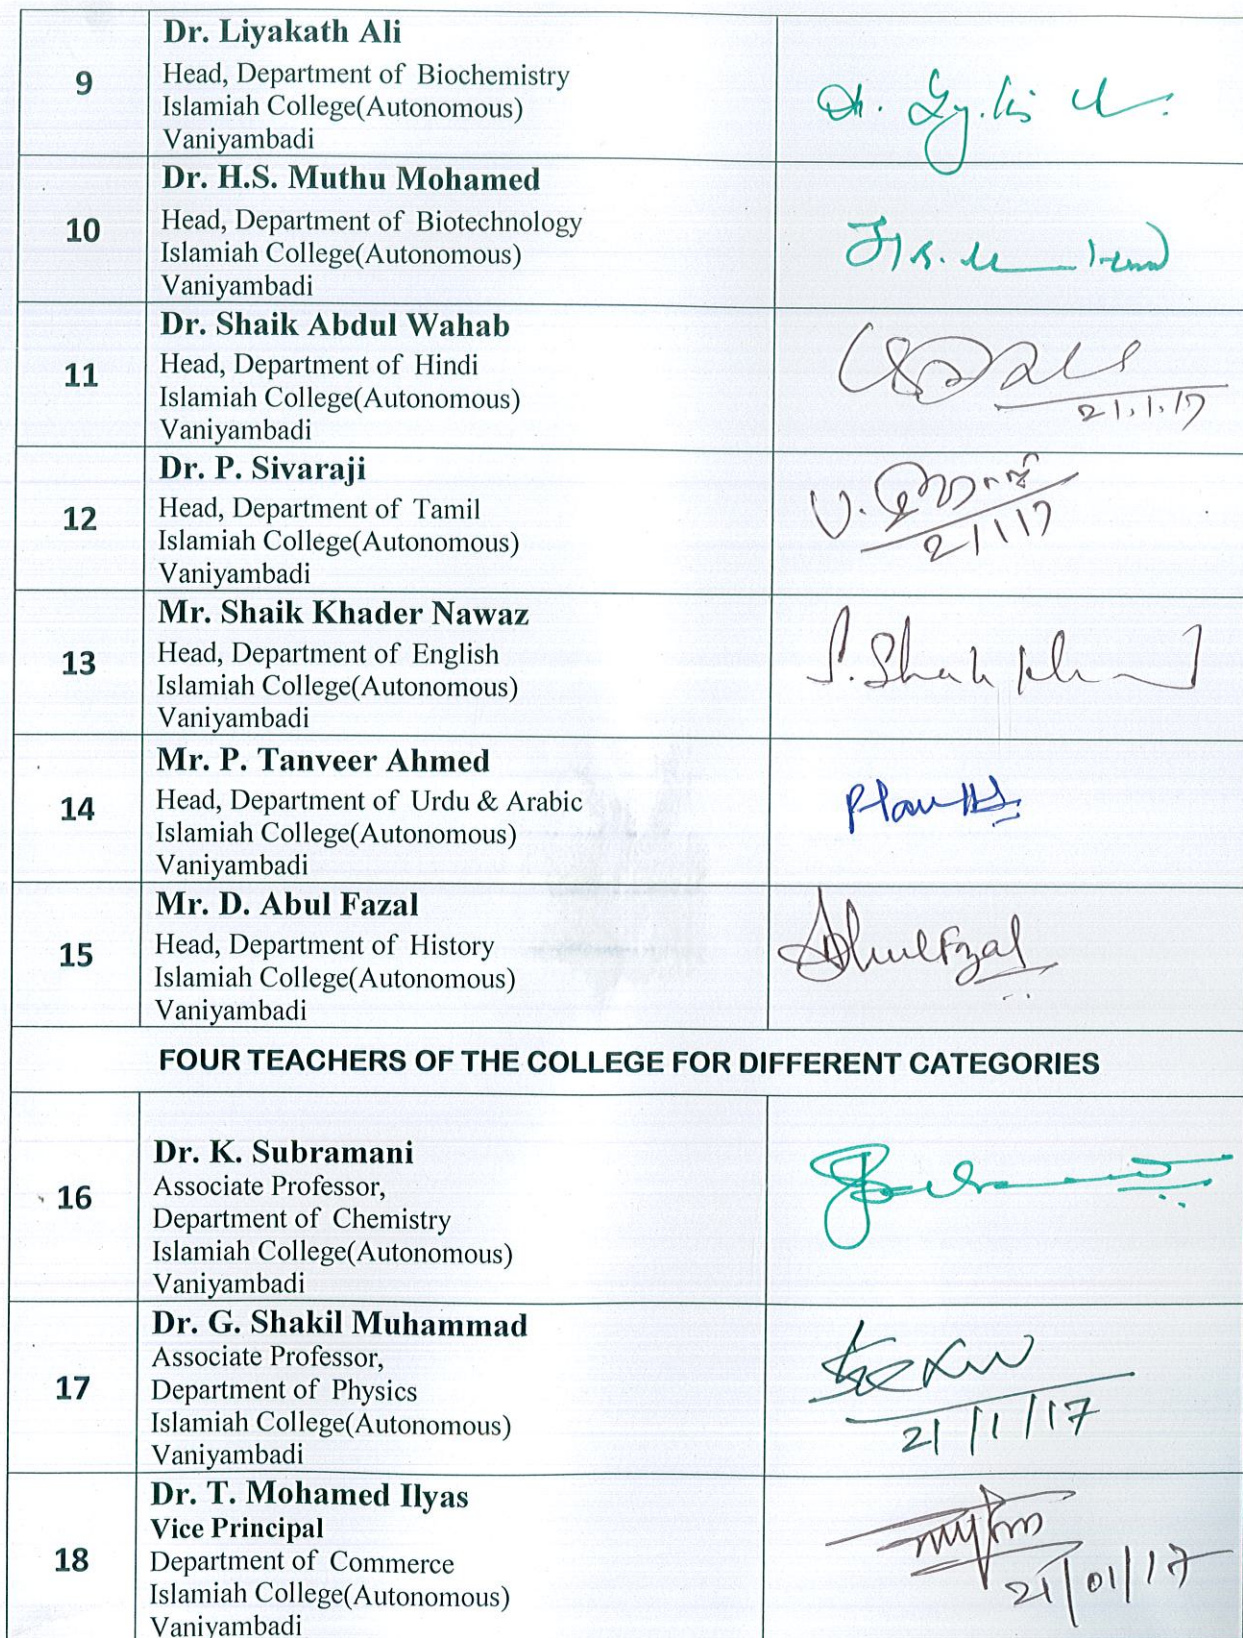 9
Dr. Liyakath Ali
Head, Department of Biochemistry
Islamiah College(Autonomous)
Vaniyambadi
10
Dr. H.S. Muthu Mohamed
Head, Department of Biotechnology
Islamiah College(Autonomous)
Vaniyambadi
11
Dr. Shaik Abdul Wahab
Head, Department of Hindi
Islamiah College(Autonomous)
Vaniyambadi
21.1.17
12
Dr. P. Sivaraji
Head, Department of Tamil
Islamiah College(Autonomous)
Vaniyambadi
13
Mr. Shaik Khader Nawaz
Head, Department of English
Islamiah College(Autonomous)
Vaniyambadi
14
Mr. P. Tanveer Ahmed
Head, Department of Urdu & Arabic
Islamiah College(Autonomous)
Vaniyambadi
15
Mr. D. Abul Fazal
Head, Department of History
Islamiah College(Autonomous)
Vaniyambadi
FOUR TEACHERS OF THE COLLEGE FOR DIFFERENT CATEGORIES
16
Dr. K. Subramani
Associate Professor,
Department of Chemistry
Islamiah College(Autonomous)
Vaniyambadi
17
Dr. G. Shakil Muhammad
Associate Professor,
Department of Physics
Islamiah College(Autonomous)
Vaniyambadi
21/1/17
18
Dr. T. Mohamed Ilyas
Vice Principal
Department of Commerce
Islamiah College(Autonomous)
Vaniyambadi
21/01/17